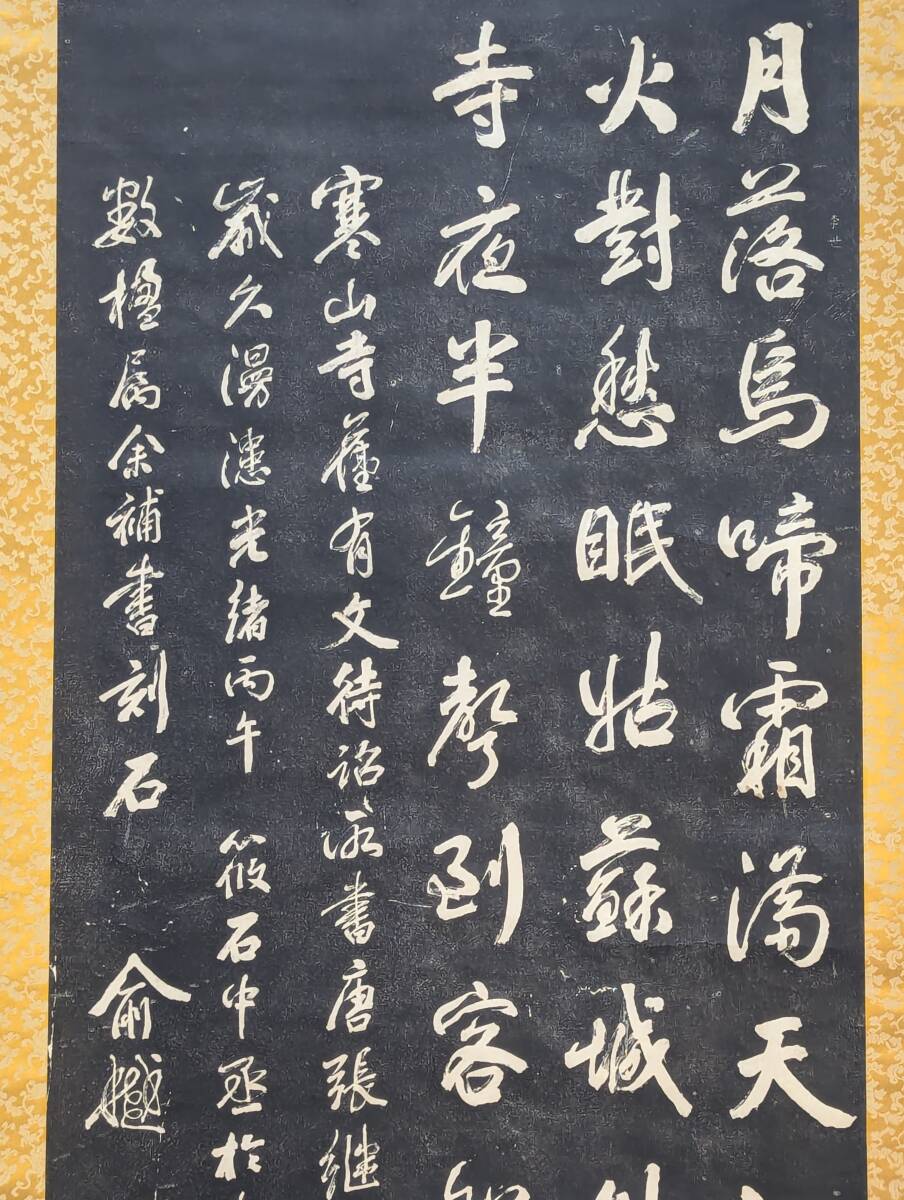 月落烏啼霜滿天
火對愁眠姑蘇城外
寺夜半鐘聲到客船
寒山寺舊有文待詔所書唐張繼
歲久漫漶光緒丙午 筱石中丞於
數楹屬余補書刻石 俞樾